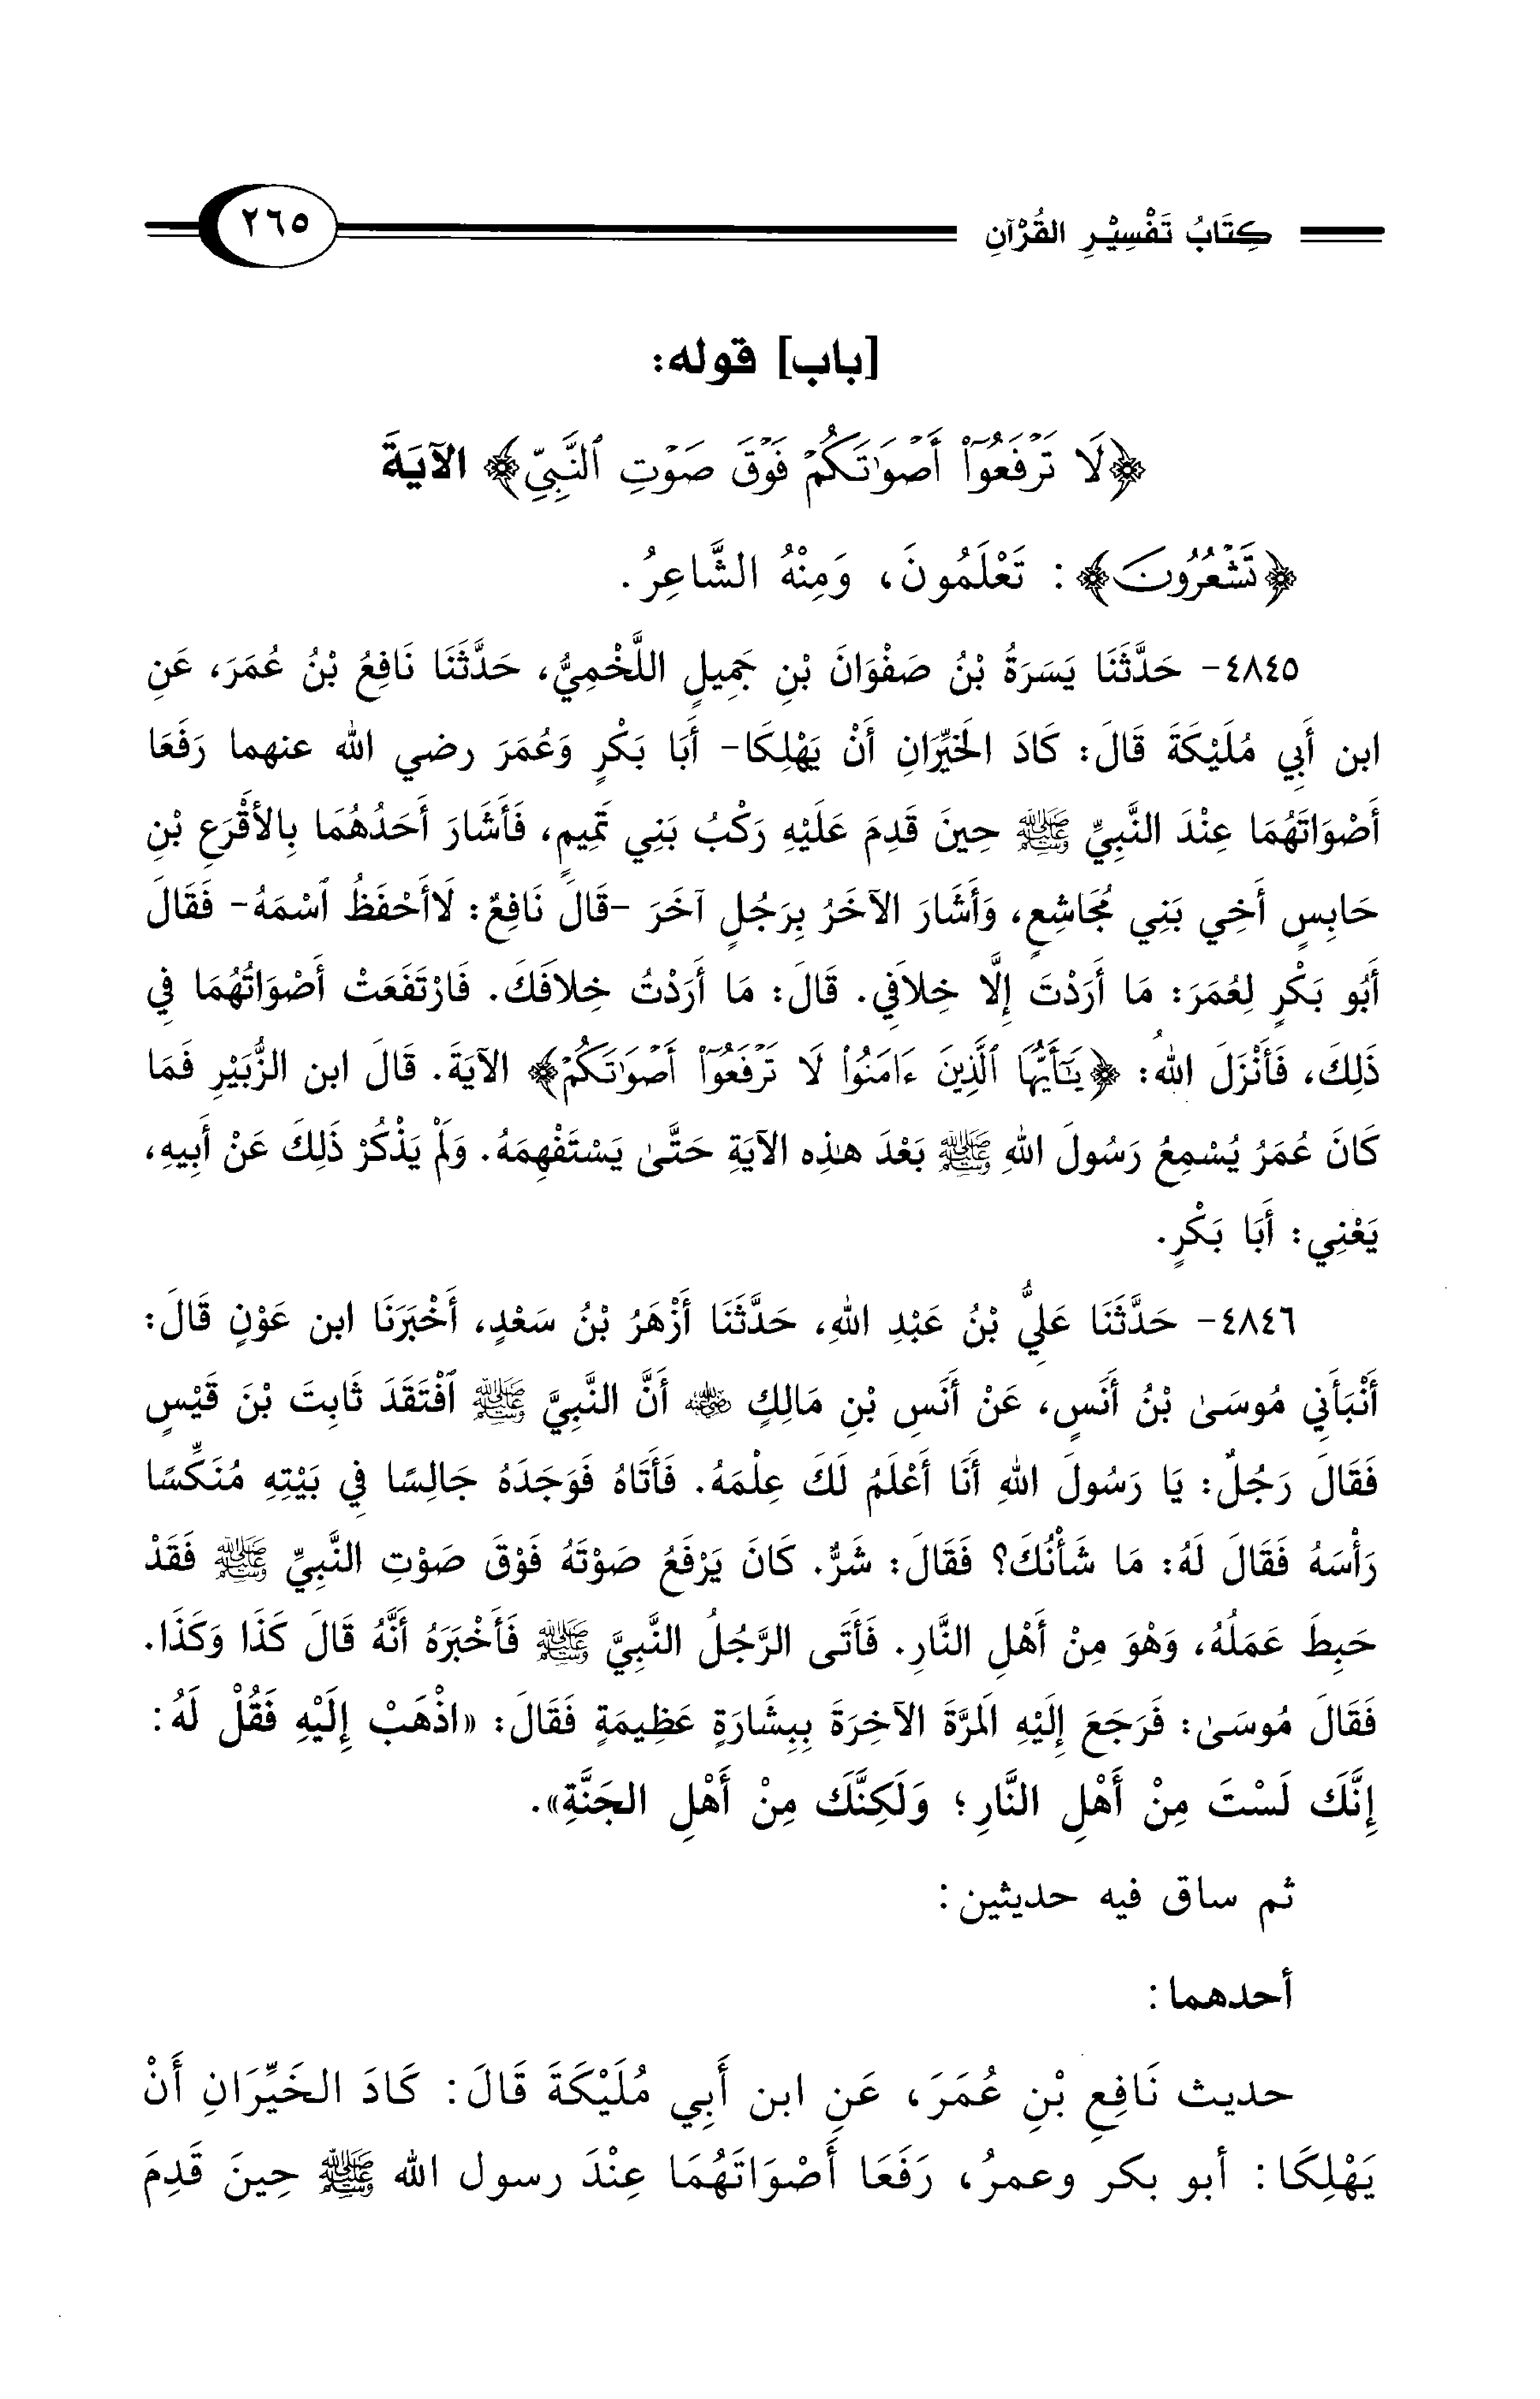 كِتَابُ تَفْسِيْرِ القُرْآنِ
٢٦٥
[باب] قوله:
﴿لَا تَرْفَعُوٓا۟ أَصْوَٰتَكُمْ فَوْقَ صَوْتِ ٱلنَّبِيِّ﴾ الآيَةَ
﴿تَشْعُرُونَ﴾: تَعْلَمُونَ، وَمِنْهُ الشَّاعِرُ.
٤٨٤٥- حَدَّثَنَا يَسَرَةُ بْنُ صَفْوَانَ بْنِ جَمِيلٍ اللَّخْمِيُّ، حَدَّثَنَا نَافِعُ بْنُ عُمَرَ، عَنِ
ابن أَبِي مُلَيْكَةَ قَالَ: كَادَ الخَيِّرَانِ أَنْ يَهْلِكَا- أَبَا بَكْرٍ وَعُمَرَ رضي الله عنهما رَفَعَا
أَصْوَاتَهُمَا عِنْدَ النَّبِيِّ ﷺ حِينَ قَدِمَ عَلَيْهِ رَكْبُ بَنِي تَمِيمٍ، فَأَشَارَ أَحَدُهُمَا بِالأَقْرَعِ بْنِ
حَابِسٍ أَخِي بَنِي مُجَاشِعٍ، وَأَشَارَ الآخَرُ بِرَجُلٍ آخَرَ -قَالَ نَافِعٌ: لَاأَحْفَظُ ٱسْمَهُ- فَقَالَ
أَبُو بَكْرٍ لِعُمَرَ: مَا أَرَدْتَ إِلَّا خِلاَفِي. قَالَ: مَا أَرَدْتُ خِلاَفَكَ. فَارْتَفَعَتْ أَصْوَاتُهُمَا فِي
ذَلِكَ، فَأَنْزَلَ اللهُ: ﴿يَٰٓأَيُّهَا ٱلَّذِينَ ءَامَنُوا۟ لَا تَرْفَعُوٓا۟ أَصْوَٰتَكُمْ﴾ الآيَةَ. قَالَ ابن الزُّبَيْرِ فَمَا
كَانَ عُمَرُ يُسْمِعُ رَسُولَ اللهِ ﷺ بَعْدَ هٰذِه الآيَةِ حَتَّىٰ يَسْتَفْهِمَهُ. وَلَمْ يَذْكُرْ ذَلِكَ عَنْ أَبِيهِ،
يَعْنِي: أَبَا بَكْرٍ.
٤٨٤٦- حَدَّثَنَا عَلِيُّ بْنُ عَبْدِ اللهِ، حَدَّثَنَا أَزْهَرُ بْنُ سَعْدٍ، أَخْبَرَنَا ابن عَوْنٍ قَالَ:
أَنْبَأَنِي مُوسَىٰ بْنُ أَنَسٍ، عَنْ أَنَسِ بْنِ مَالِكٍ رضي الله عنه أَنَّ النَّبِيَّ ﷺ ٱفْتَقَدَ ثَابِتَ بْنَ قَيْسٍ
فَقَالَ رَجُلٌ: يَا رَسُولَ اللهِ أَنَا أَعْلَمُ لَكَ عِلْمَهُ. فَأَتَاهُ فَوَجَدَهُ جَالِسًا فِي بَيْتِهِ مُنَكِّسًا
رَأْسَهُ فَقَالَ لَهُ: مَا شَأْنُكَ؟ فَقَالَ: شَرٌّ. كَانَ يَرْفَعُ صَوْتَهُ فَوْقَ صَوْتِ النَّبِيِّ ﷺ فَقَدْ
حَبِطَ عَمَلُهُ، وَهْوَ مِنْ أَهْلِ النَّارِ. فَأَتَى الرَّجُلُ النَّبِيَّ ﷺ فَأَخْبَرَهُ أَنَّهُ قَالَ كَذَا وَكَذَا.
فَقَالَ مُوسَىٰ: فَرَجَعَ إِلَيْهِ المَرَّةَ الآخِرَةَ بِبِشَارَةٍ عَظِيمَةٍ فَقَالَ: «اذْهَبْ إِلَيْهِ فَقُلْ لَهُ:
إِنَّكَ لَسْتَ مِنْ أَهْلِ النَّارِ؛ وَلَكِنَّكَ مِنْ أَهْلِ الجَنَّةِ».
ثم ساق فيه حديثين:
أحدهما:
حديث نَافِعِ بْنِ عُمَرَ، عَنِ ابن أَبِي مُلَيْكَةَ قَالَ: كَادَ الخَيِّرَانِ أَنْ
يَهْلِكَا: أبو بكر وعمرُ، رَفَعَا أَصْوَاتَهُمَا عِنْدَ رسول الله ﷺ حِينَ قَدِمَ